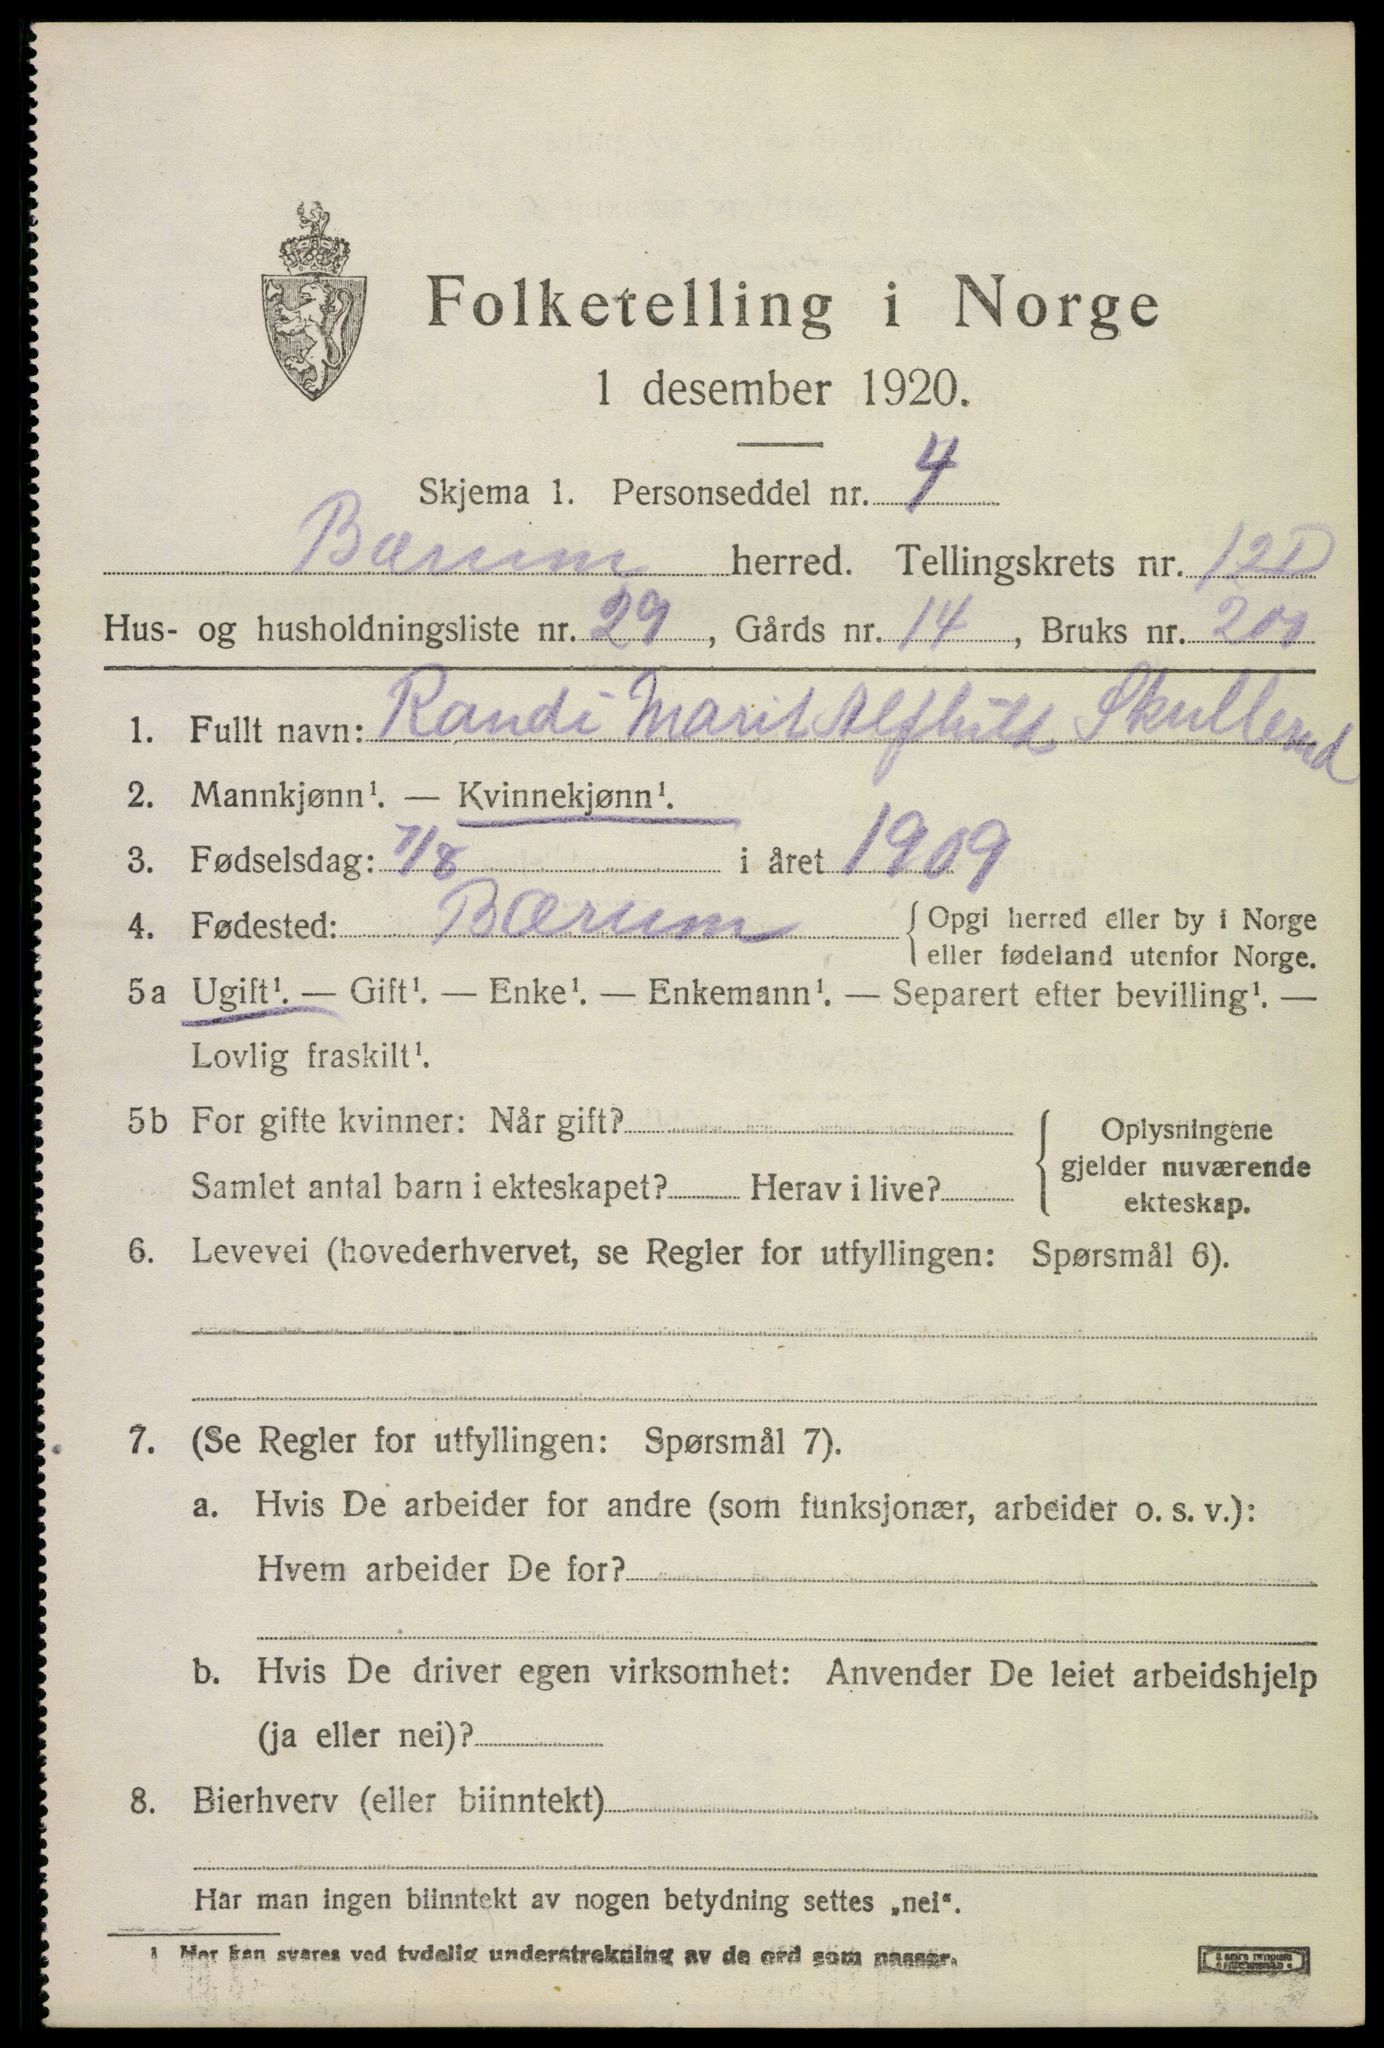 Folketelling i Norge
1 desember 1920.
Skjema 1. Personseddel nr. 4
Bærum herred. Tellingskrets nr. 12 I
Hus- og husholdningsliste nr. 29, Gårds nr. 14, Bruks nr. 201
1. Fullt navn: Randi Marit Alfhild Skullerud
2. Mannkjønn¹. — Kvinnekjønn¹.
3. Fødselsdag: 7/8 i året 1909
4. Fødested: Bærum { Opgi herred eller by i Norge
eller fødeland utenfor Norge.
5a Ugift¹. — Gift¹. — Enke¹. — Enkemann¹. — Separert efter bevilling¹. —
Lovlig fraskilt¹.
5b For gifte kvinner: Når gift? { Oplysningene
gjelder nuværende
Samlet antal barn i ekteskapet? Herav i live? ekteskap.
6. Levevei (hovederhvervet, se Regler for utfyllingen: Spørsmål 6).
7. (Se Regler for utfyllingen: Spørsmål 7).
a. Hvis De arbeider for andre (som funksjonær, arbeider o. s. v.):
Hvem arbeider De for?
b. Hvis De driver egen virksomhet: Anvender De leiet arbeidshjelp
(ja eller nei)?
8. Bierhverv (eller biinntekt)
Har man ingen biinntekt av nogen betydning settes „nei“.
1 Her kan svares ved tydelig understrekning av de ord som passer.